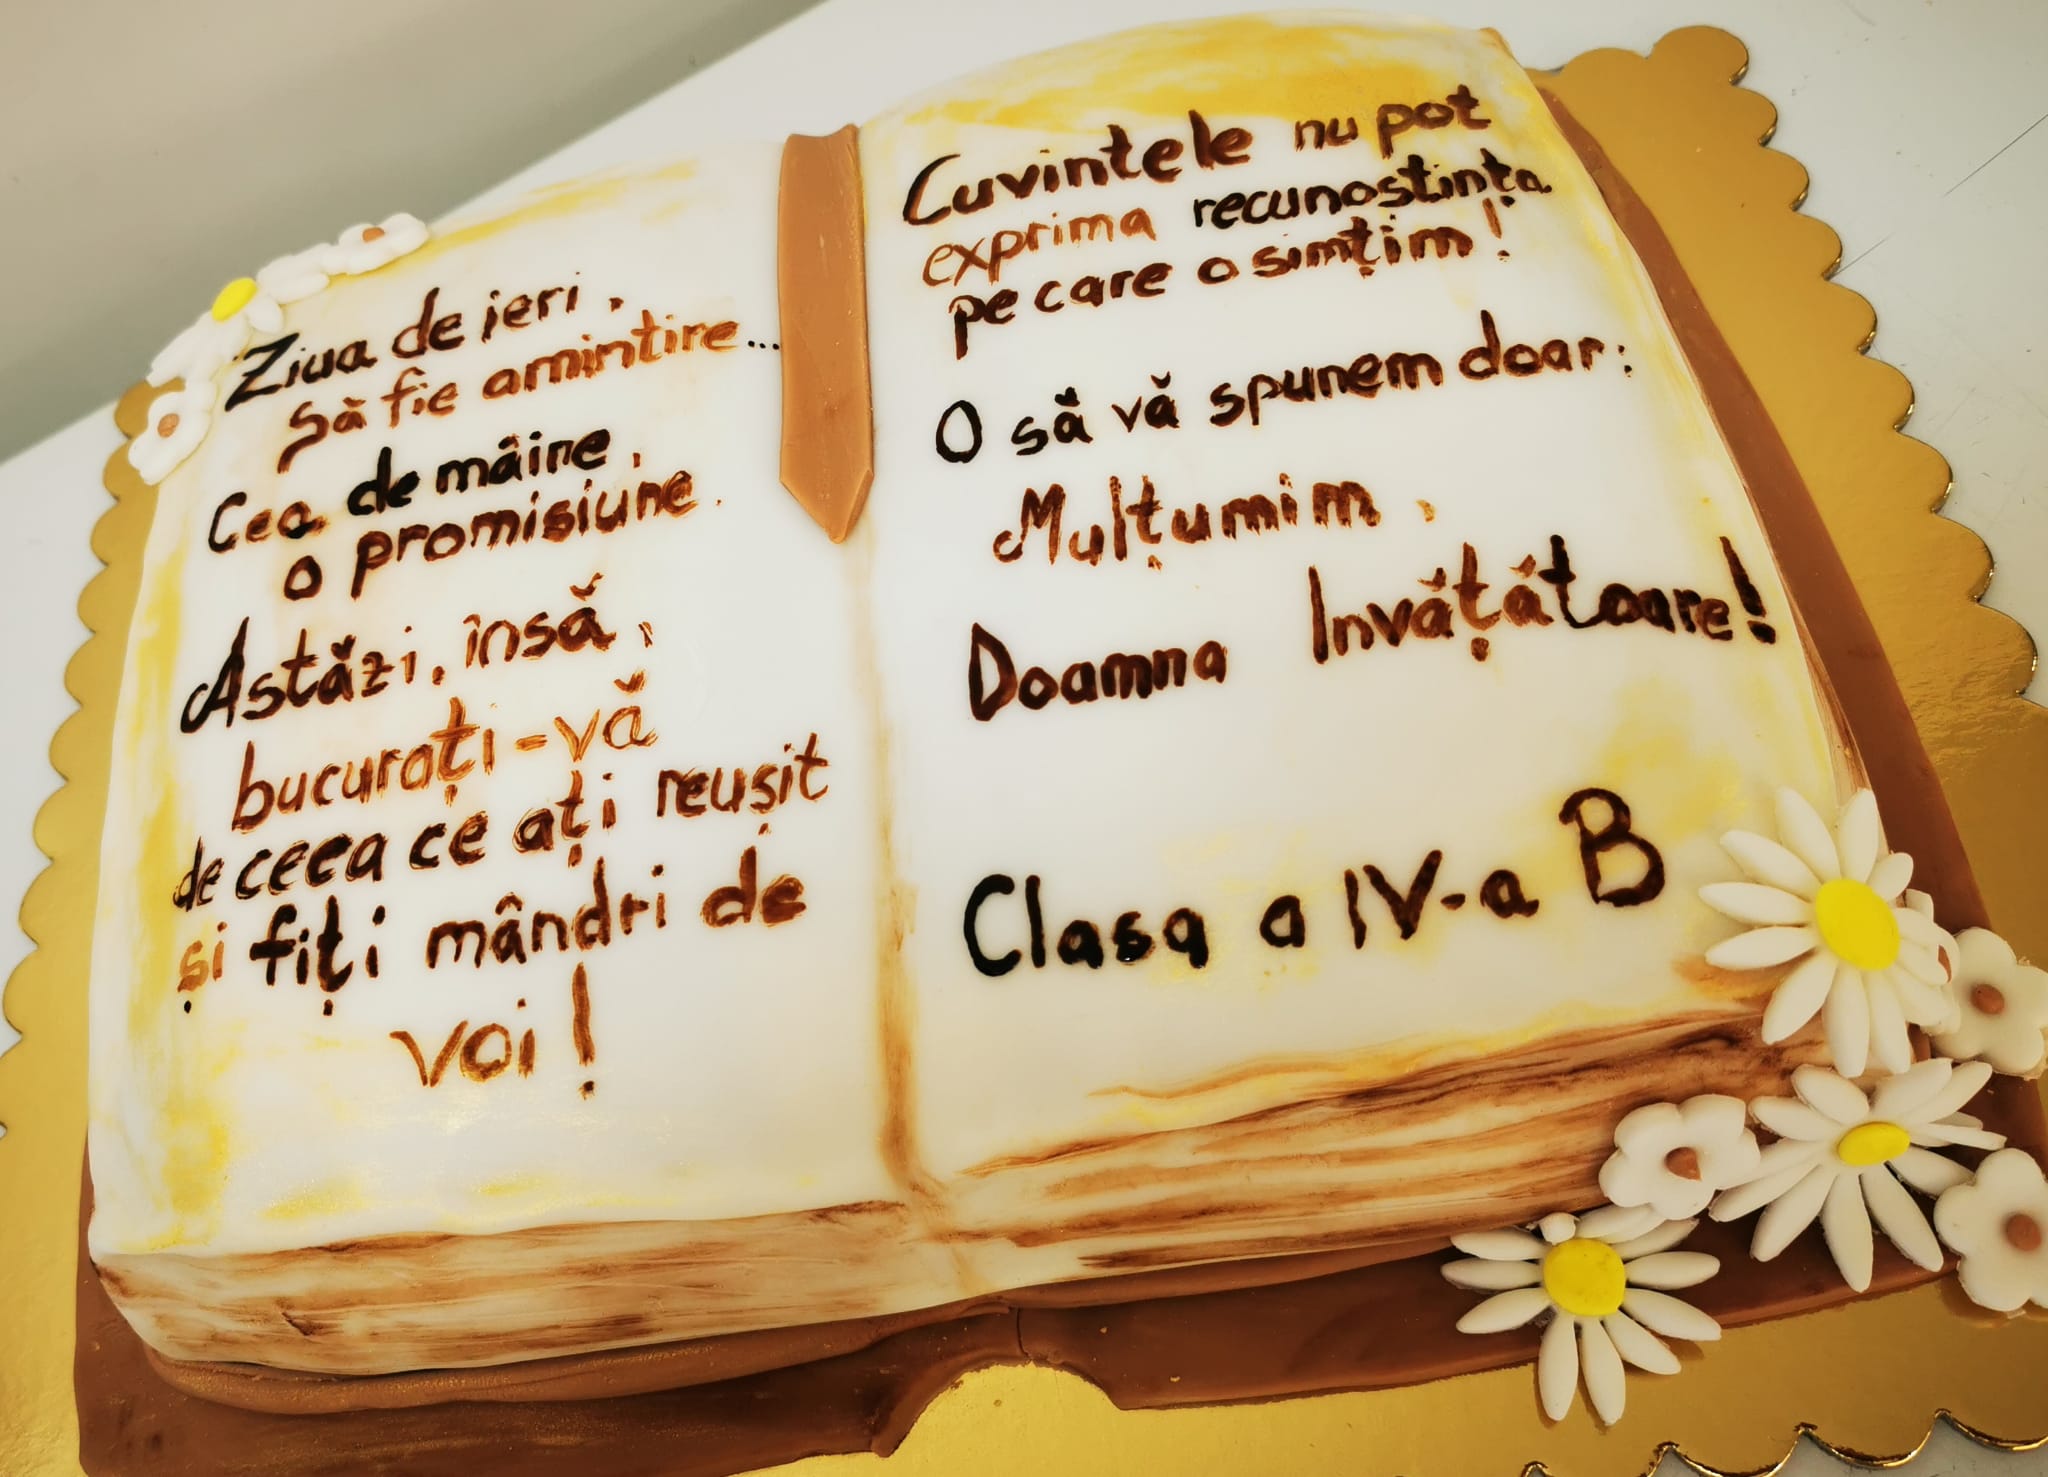 Ziua de ieri,
Să fie amintire...
Cea de mâine,
o promisiune.
Astăzi, însă,
bucurați-vă
de ceea ce ați reușit
și fiți mândri de
voi!
Cuvintele nu pot
exprima recunostința
pe care o simțim!
O să vă spunem doar:
Mulțumim,
Doamna Învățătoare!
Clasa a IV-a B